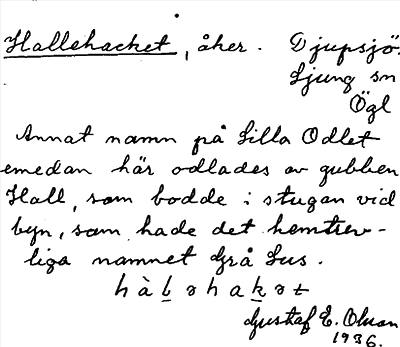 Hallehacket, åker. Djupsjö.
Ljung sn
Ögl
Annat namn på Lilla Odlet
emedan här odlades av gubben
Hall, som bodde i stugan vid
byn, som hade det hemtrev-
liga namnet Grå Lus.
hàḻəhaḵət
Gustaf E. Olson
1936.